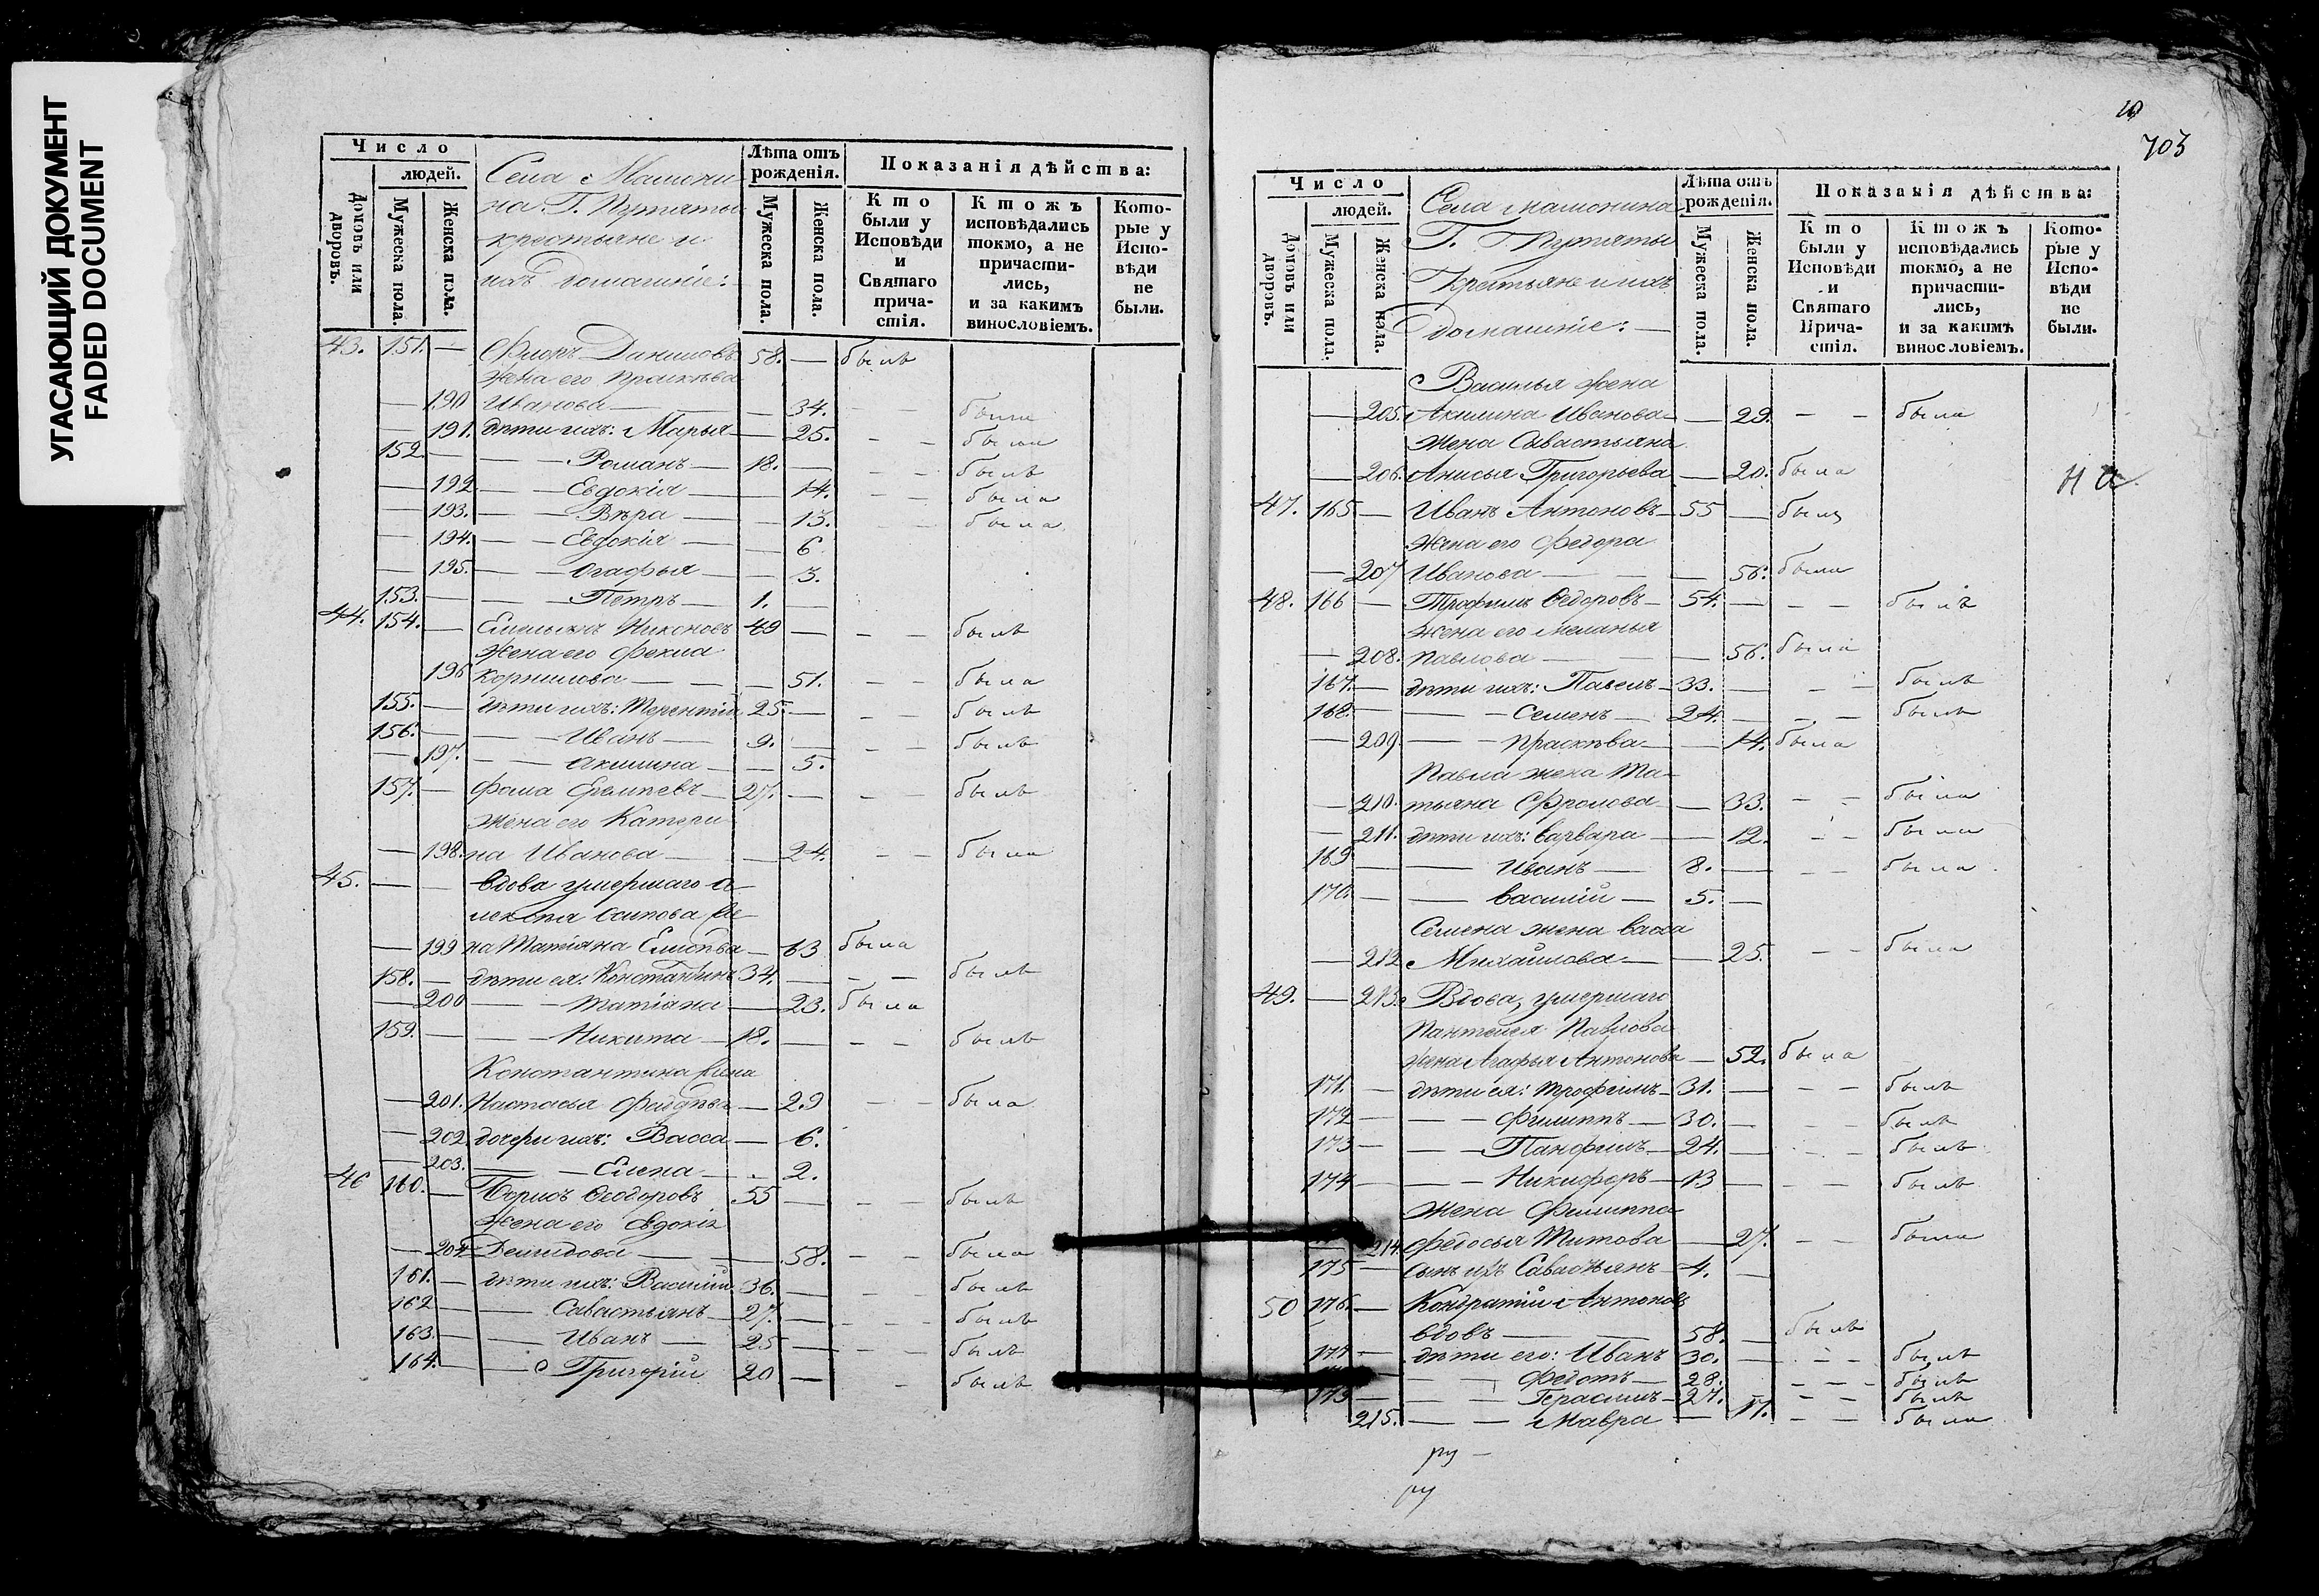 УГАСАЮЩИЙ ДОКУМЕНТ
FADED DOCUMENT
Число
людей.
Домовъ или дворовъ.
Мужеска пола.
Женска пола.
Села Мамони-
на Г. Путяты
крестьяне и
ихъ домашніе:
Лѣта отъ рожденія.
Мужеска пола.
Женска пола.
Показанія дѣйства:
Кто были у Исповѣди и Святаго причастія.
Ктожъ исповѣдались токмо, а не причастились, и за какимъ винословіемъ.
Которые у Исповѣди не были.
43. 151. — Флоръ Даниловъ 58. — былъ
Жена его Прасковья
— 190 Иванова — — 34. — — была
— 191. дѣти ихъ: Марья — 25. — — была
152. — — — Романъ — 18. — — — былъ
— 192 — — Евдокія — — 14. — — была
— 193. — — Вѣра — — 13. — была
— 194. — — Евдокія — — 6
— 195. — — Агафья — — 3.
153. — — — Петръ — 1. —
44. 154. — Емельянъ Никоновъ 49 — — — былъ
Жена его Фекла
196 Корнилова — — — 51. — — была
155. — дѣти ихъ: Терентій 25. — — — былъ
156. — — — Иванъ — 9. — — — былъ
— 197. — — Акилина — — 5.
157. — Фома Еремѣевъ — 27. — — — былъ
Жена его Катери-
— 198. на Иванова — — 24. — — была
45. — — Вдова умершаго А-
лексѣя Осипова же-
— 199 на Татіяна Елисѣева — 63 была
158. — дѣти ея: Константинъ 34. — — — былъ
— 200 — — Татіяна — — 23. была
159. — — — Никита — 18. — — — былъ
Константина жена
— 201. Настасья Фадѣева — 29 — — была
— 202. дочери ихъ: Васса — 6.
— 203. — — Елена — — 2.
46 160. — Борисъ Ѳеодоровъ 55 — — былъ
Жена его Евдокія
— 204 Демидова — — 58. — — была
161. — дѣти ихъ: Василій 36. — — — былъ
162 — — Савастьянъ — 27. — — — — былъ
163. — — Иванъ — 25 — — — былъ
164. — — Григорій 20 — — былъ
10
703
Число
людей.
Домовъ или дворовъ.
Мужеска пола.
Женска пола.
Села Мамонина
Г. Г. Путяты
Крестьяне и ихъ
домашніе: —
Лѣта отъ рожденія.
Мужеска пола.
Женска пола.
Показанія дѣйства:
Кто были у Исповѣди и Святаго Причастія.
Ктожъ исповѣдались токмо, а не причастились, и за какимъ винословіемъ.
Которые у Исповѣди не были.
Василья жена
— 205. Акилина Иванова — — 29. — — была
Жена Савастьяна
— 206. Анисья Григорьева — 20. была
47. 165 — Иванъ Антоновъ — 55 — былъ
Жена его Федора
— 207 Иванова — — — 56. была
48. 166 — Трофимъ Ѳедоровъ — 54. — — — былъ
Жена его Меланья
— 208. Павлова — — — 56. была
167. — дѣти ихъ: Павелъ — 33. — — — былъ
168. — — — Семенъ — 24. — — — былъ
— 209. — — Прасковья — — 14. была
Павла жена Та-
— 210. тьяна Фролова — — 33. — — была
— 211. дѣти ихъ: Варвара — — 12. — — была
169 — — Иванъ — 8. — — — была
170. — — Василій — 5. —
Семена жена Васса
— 212 Михайлова — — 25. — — была
49. — 213. Вдова, умершаго
Пантелея Павлова
жена Агафья Антонова — 52. была
171. — дѣти ея: Трофимъ — 31. — — — былъ
172 — — — Филиппъ — 30. — — — былъ
173 — — — Панфилъ — 24. — — — былъ
174 — — — Никифоръ — 13 — — — былъ
Жена Филиппа
— 214. Федосья Титова — 27. — — была
175 — Сынъ ихъ Савастьянъ — 4. —
50 176. — Кондратій Антоновъ
вдовъ — — 58. — былъ
177 — дѣти его: Иванъ 30. — — — былъ
— — Федотъ — 28. — — — былъ
179 — — — Герасимъ — 27. — — былъ
215. — — Мавра — — 17. — — была
ру —
ру